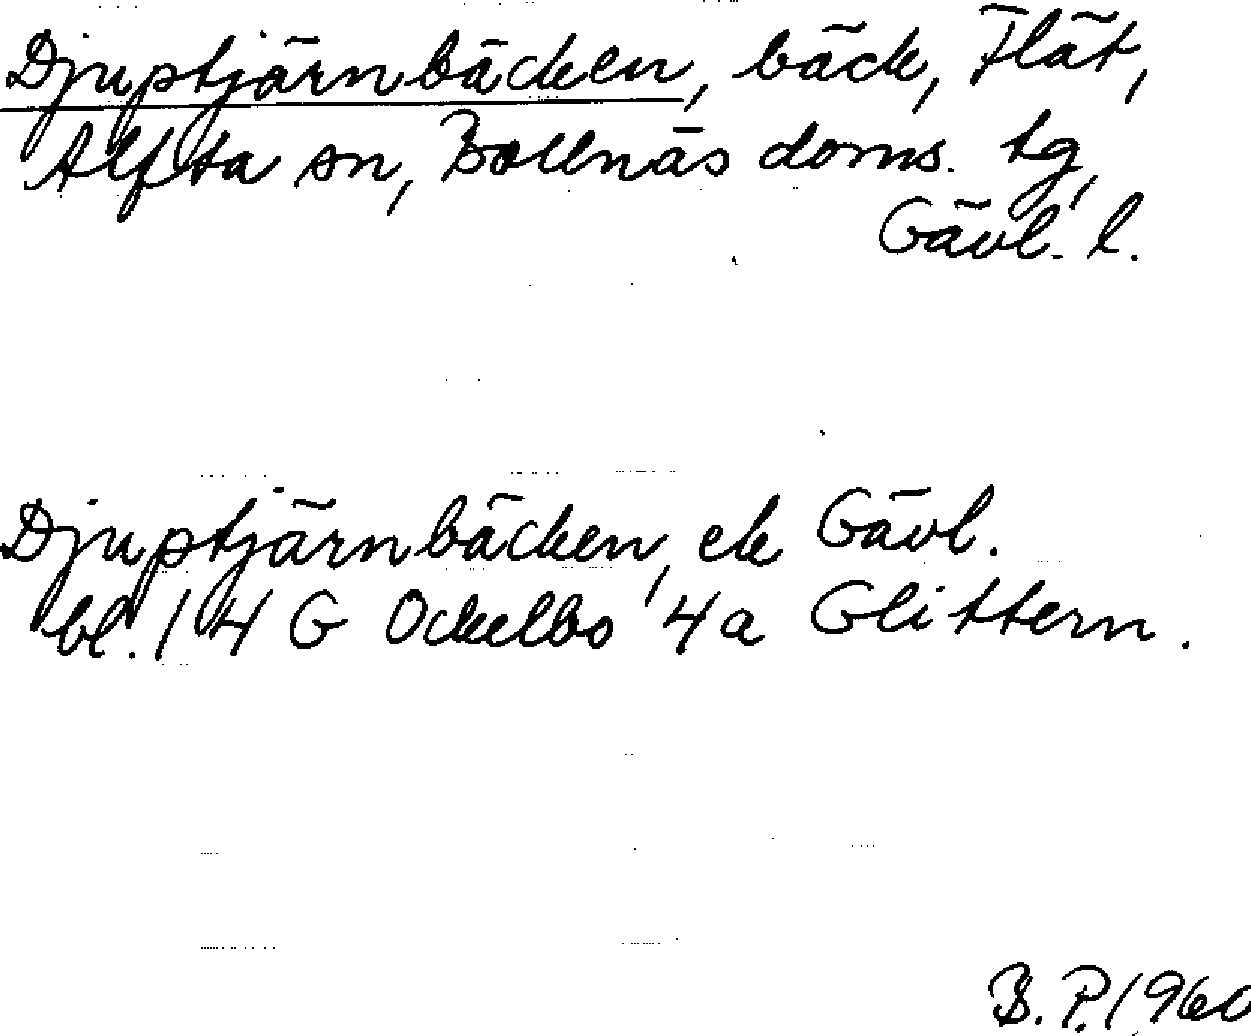 Djuptjärnbäcken, bäck, Flät,
Alfta sn, Bollnäs doms. tg,
Gävl. l.
Djuptjärnbäcken, ek Gävl.
bl. 14 G Ockelbo 4a Glittern.
B. P. 1960